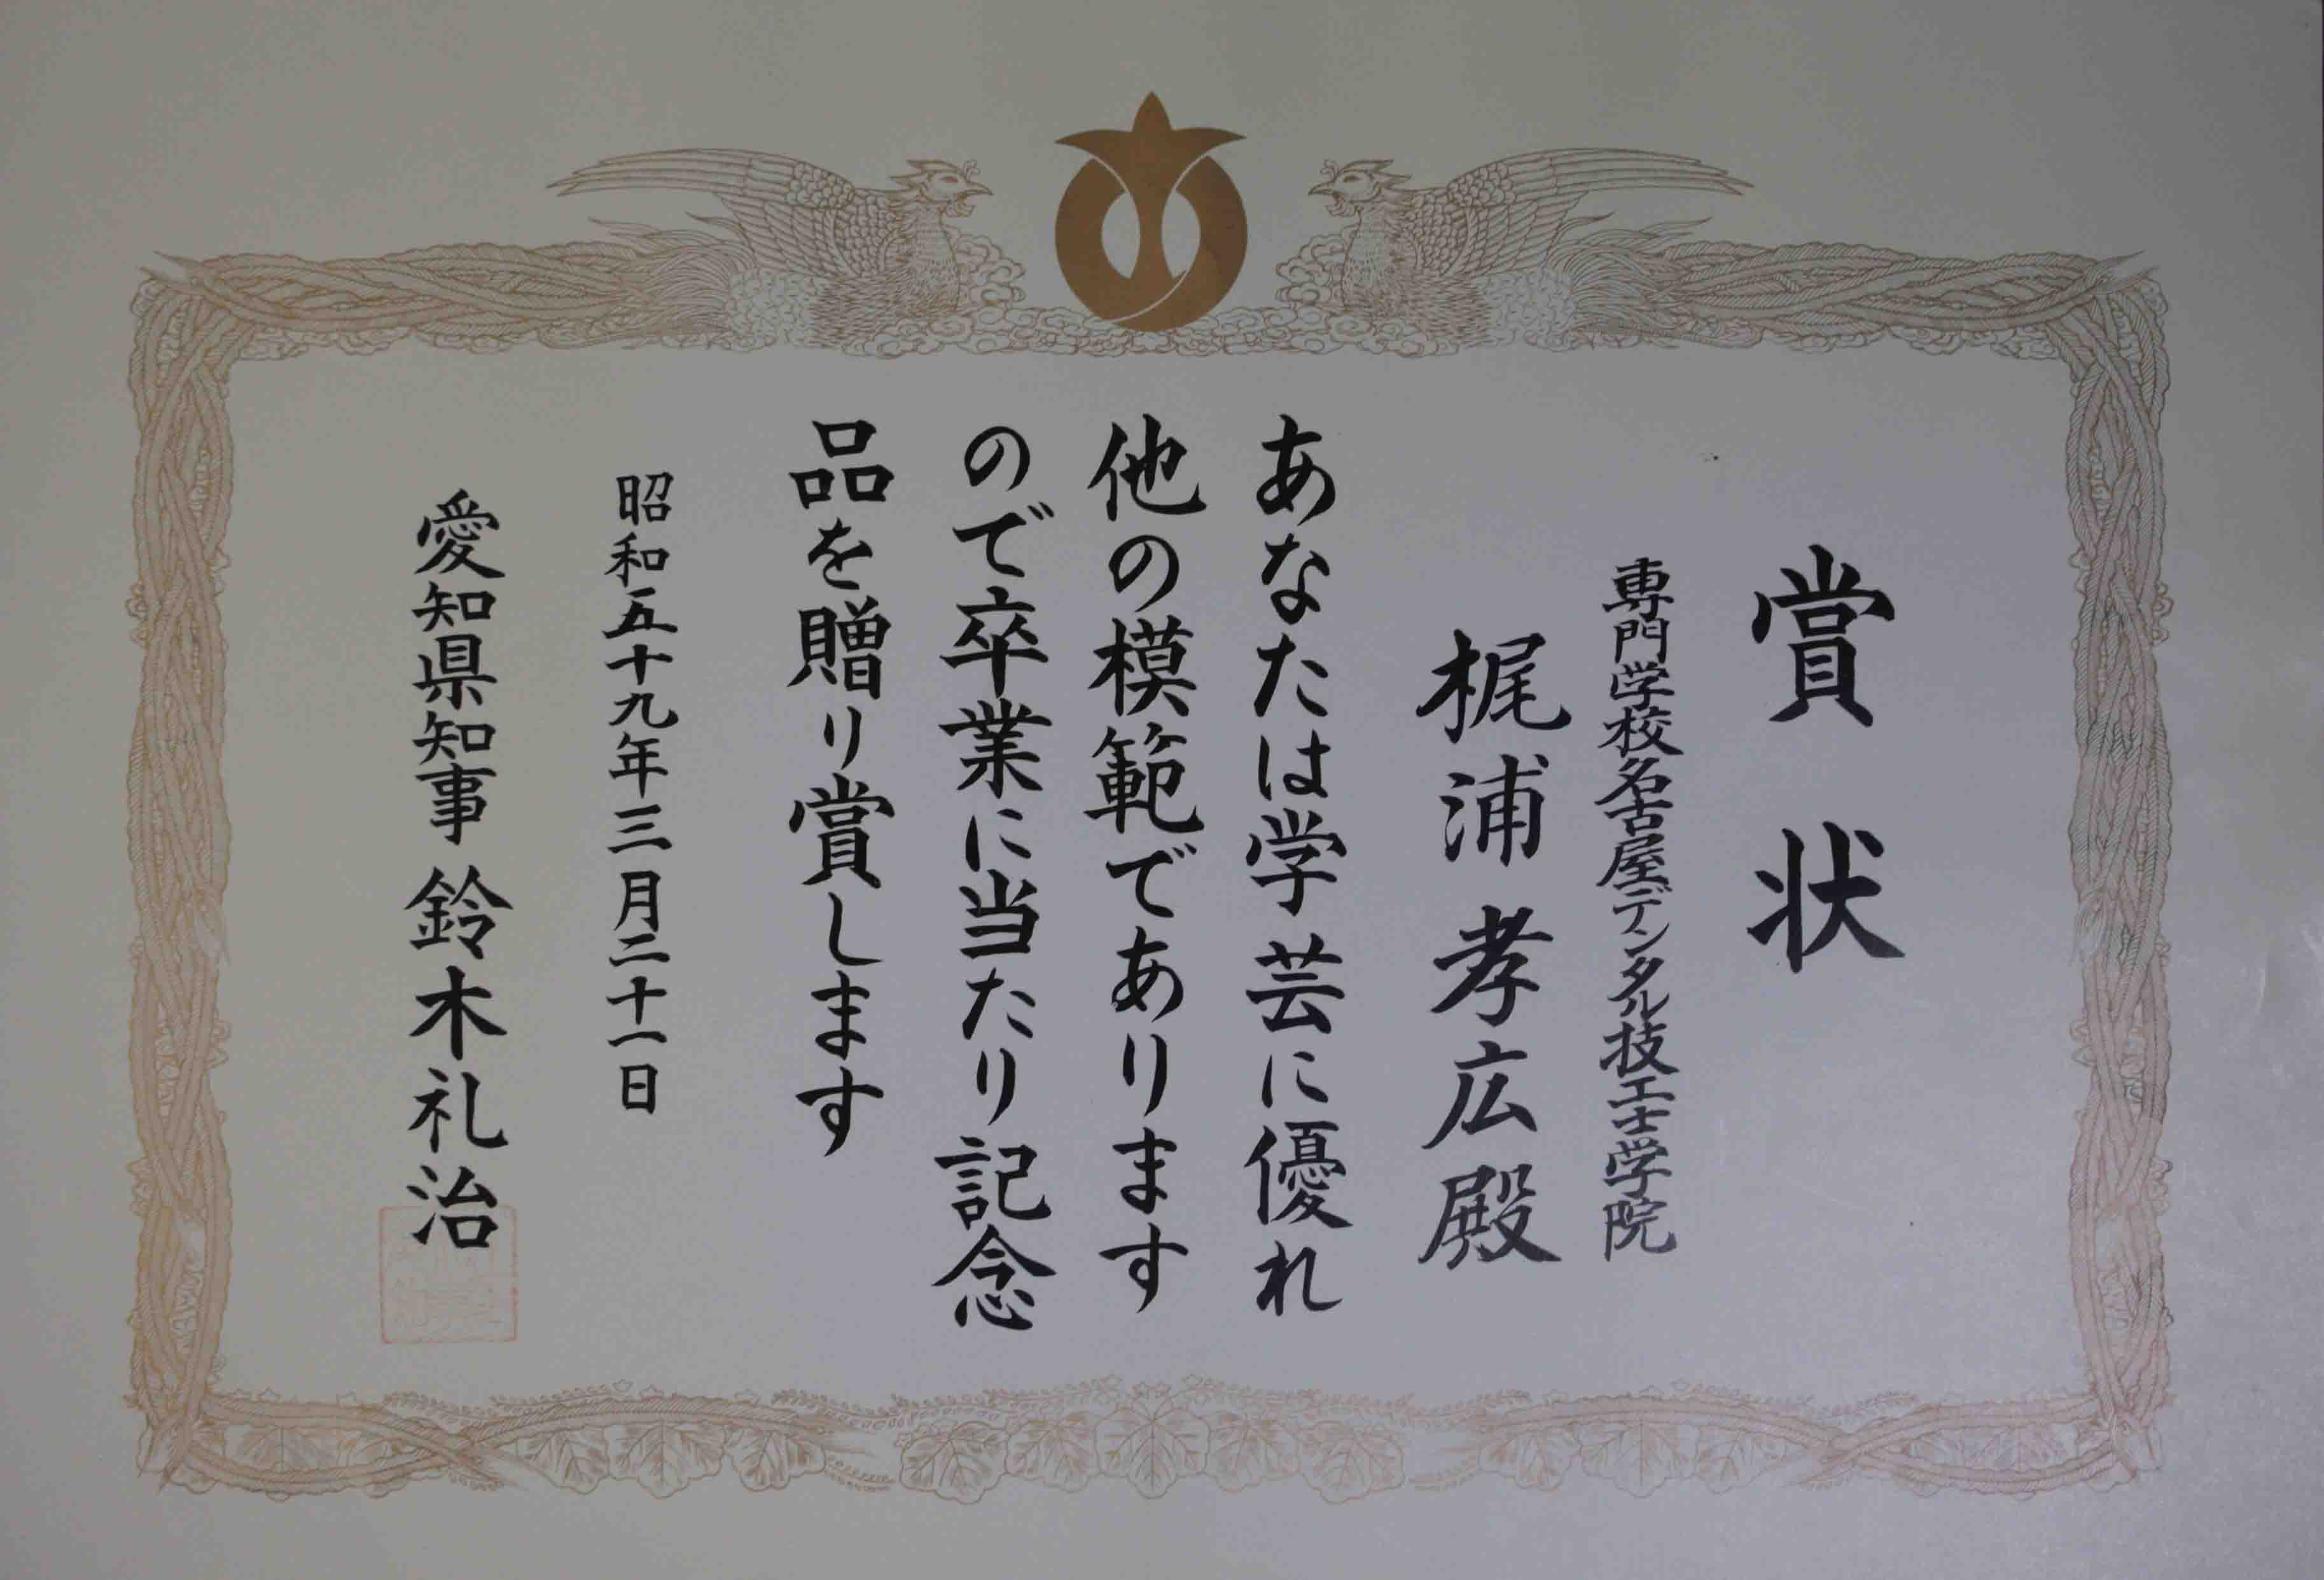 賞状
専門学校名古屋デンタル技工士学院
梶浦孝広殿
あなたは学芸に優れ
他の模範であります
ので卒業に当たり記念
品を贈り賞します
昭和五十九年三月二十一日
愛知県知事 鈴木礼治